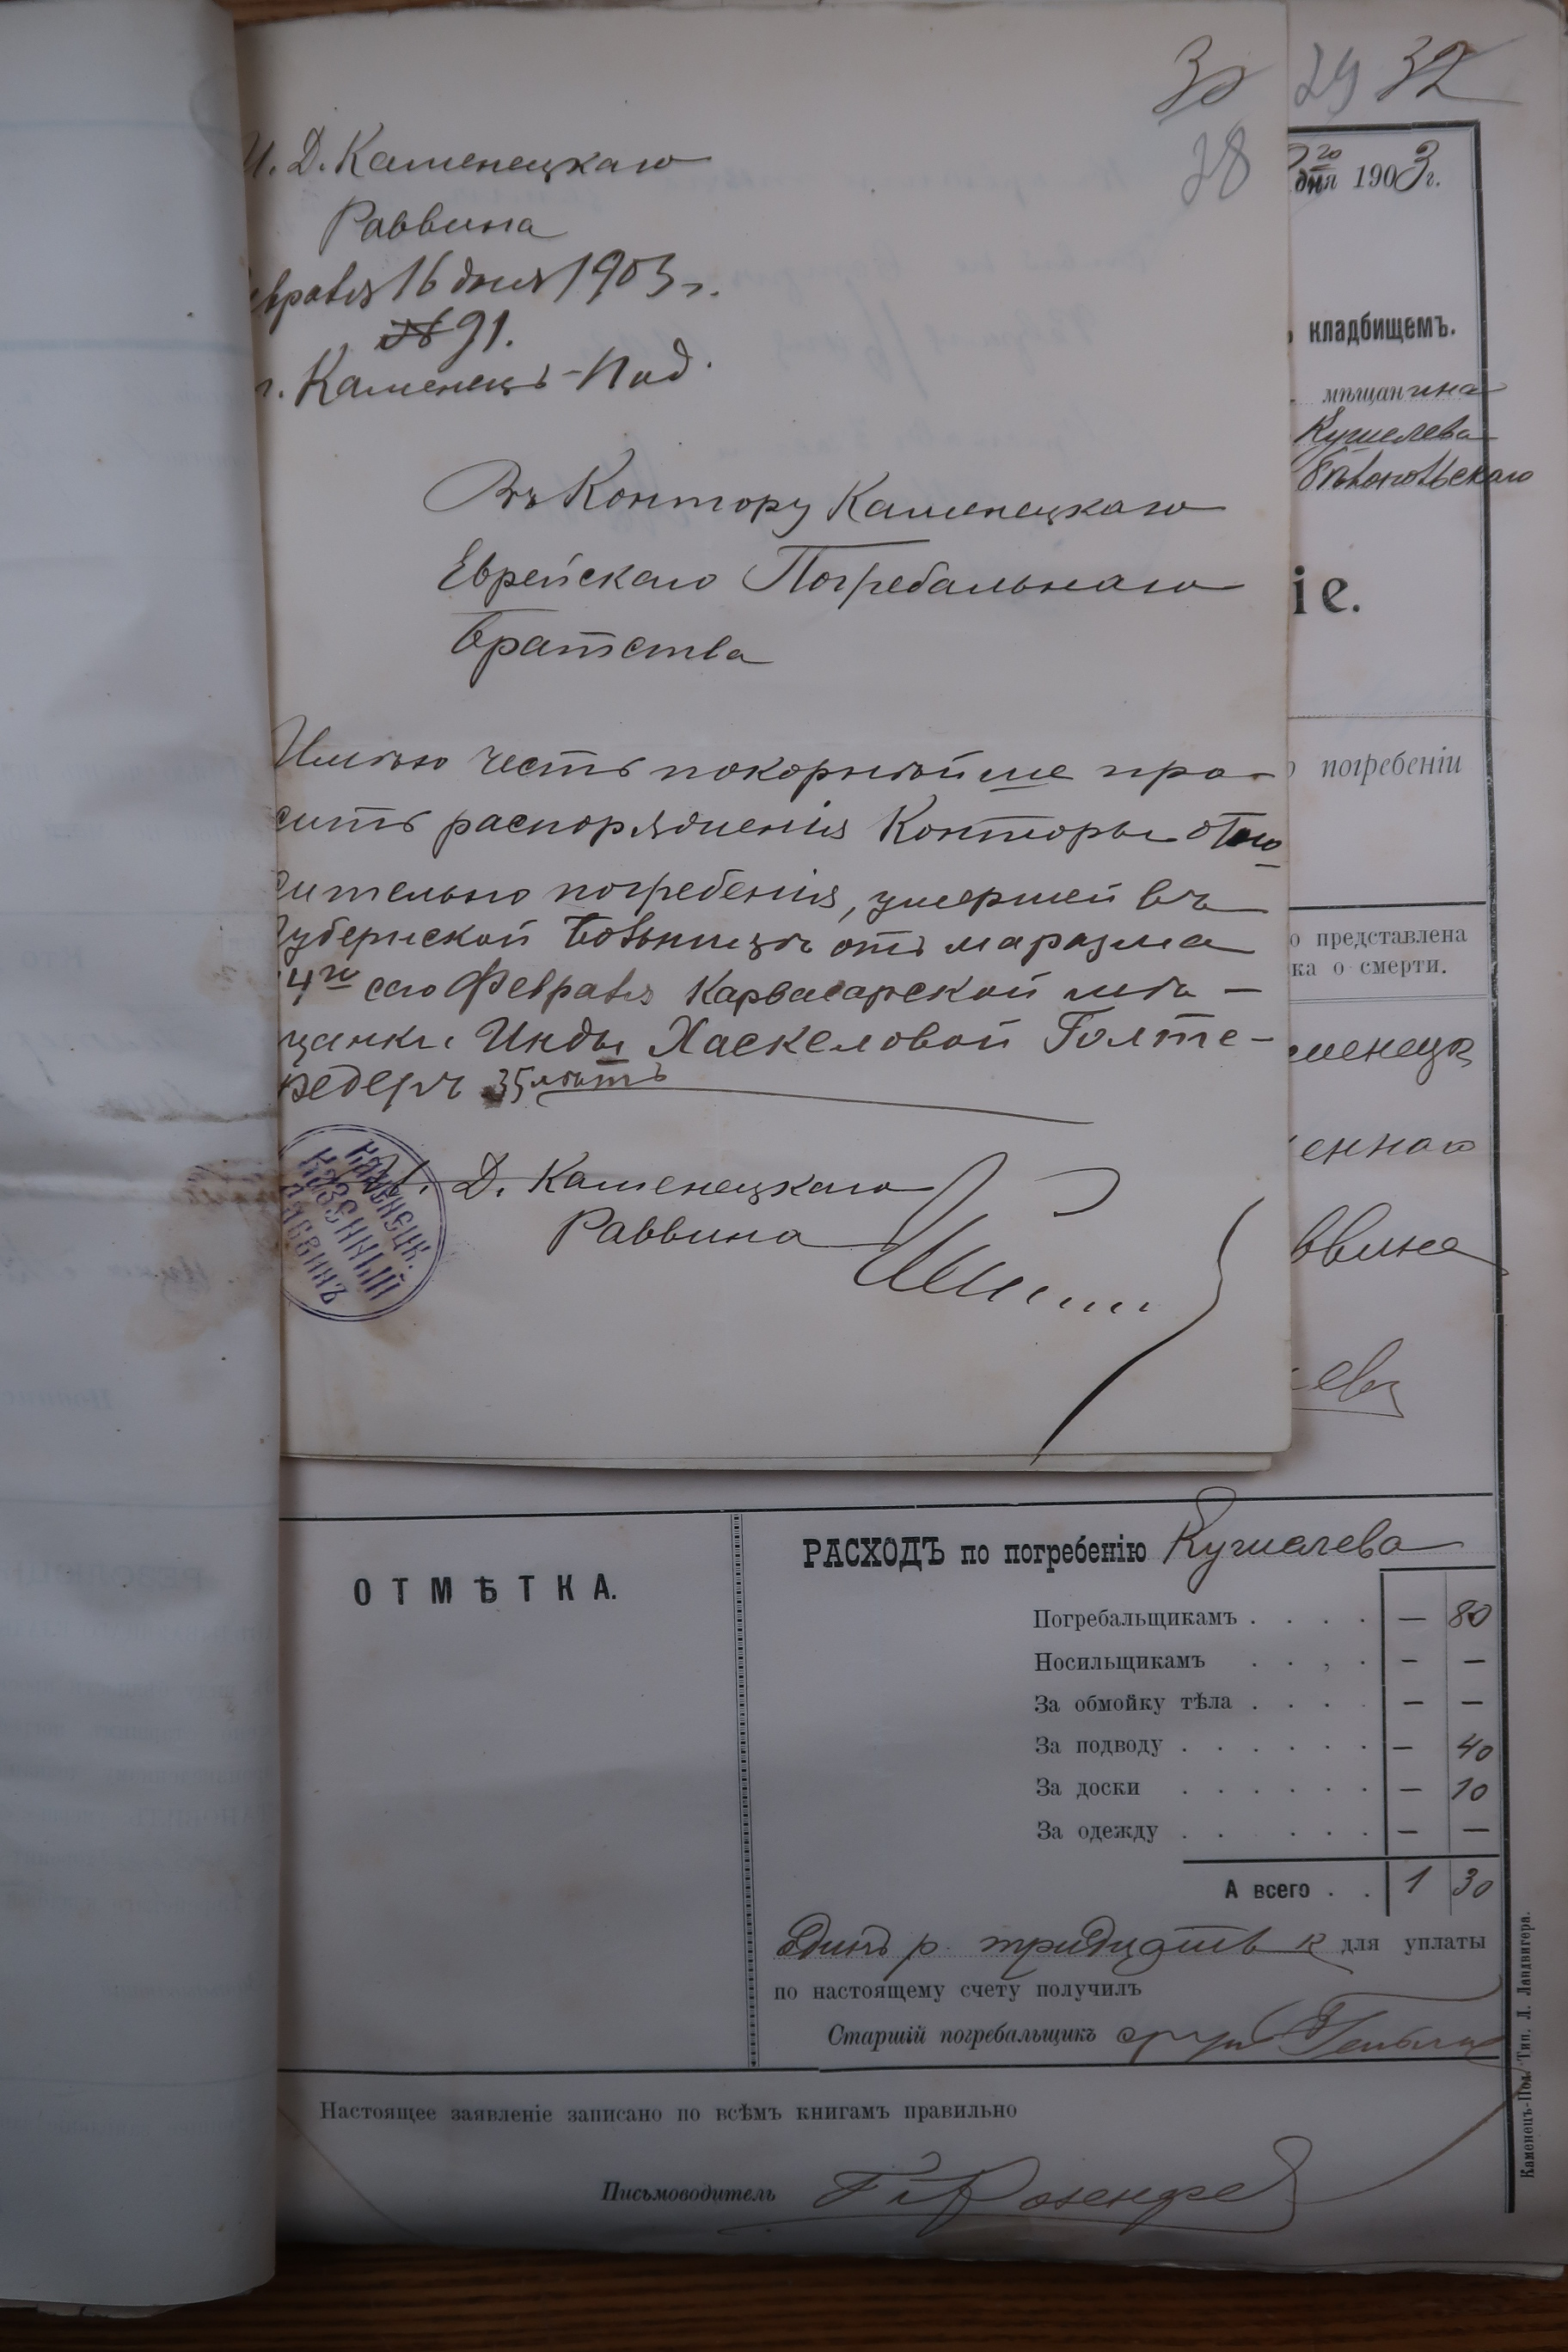 30
28
И. Д. Каменецкаго
Раввина
евраля 16 дня 1903 г.
№ 91.
г. Каменецъ-Под.
Въ Контору Каменецкаго
Еврейскаго Погребальнаго
Братства
Имѣю честь покорнѣйше про-
сить распоряженія Конторы отно
сительно погребенія, умершей въ
Губернской Больницѣ отъ маразма
14го сего Февраля Карвасарской мѣ-
щанки Инды Хаскеловой Голтс-
федеръ 35 лѣтъ
И. Д. Каменецкаго
Раввина
КАМЕНЕЦК.
КАЗЕННЫЙ
РАВВИНЪ
29 32
20
дня 1903 г.
кладбищемъ.
мѣщанина
Кушелева
іе.
погребеніи
о представлена
ка о смерти.
менецк
еннаго
ввина
ОТМѢТКА.
РАСХОДЪ по погребенію Кушелева
Погребальщикамъ . . . . — 80
Носильщикамъ . . , . — —
За обмойку тѣла . . . . — —
За подводу . . . . . . — 40
За доски . . . . . . — 10
За одежду . . . . . . — —
А всего . . 1 30
Одинъ р. тридцать к для уплаты
по настоящему счету получилъ
Старшій погребальщикъ
Настоящее заявленіе записано по всѣмъ книгамъ правильно
Письмоводитель Розенфе
Каменецъ-Под. Тип. Л. Ландвигера.